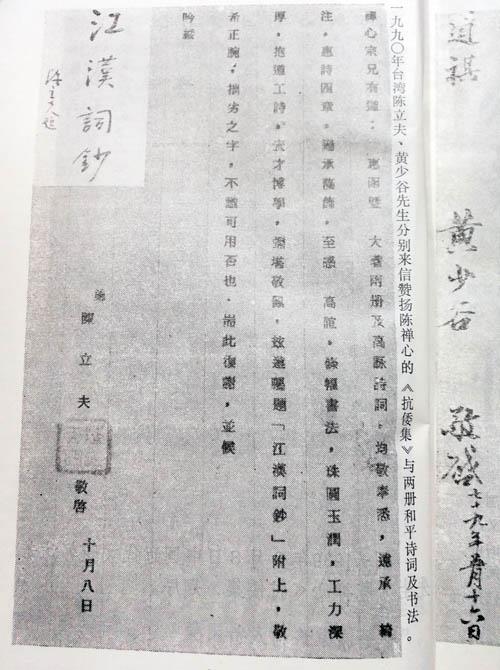 道祺
黄少谷 敬啟 七十九年 月十六日
一九九〇年台湾陈立夫、黄少谷先生分别来信赞扬陈禅心的《抗倭集》与两册和平诗词及书法。
禪心宗兄有道:惠函暨 大著兩册及高詠詩詞,均敬奉悉,遠承 綺
注,惠詩四章,承高飾,至感 高誼。條幅書法,珠圓玉潤,工力深
厚,抱道工詩,天才博學,堪敬佩,茲遵囑題「江漢詞鈔」附上,敬
希正腕,拙劣之字,不識可用否也。耑此復謝,並候
吟綏
弟 陳立夫 敬啓 十月八日
江漢詞鈔
陳立夫題